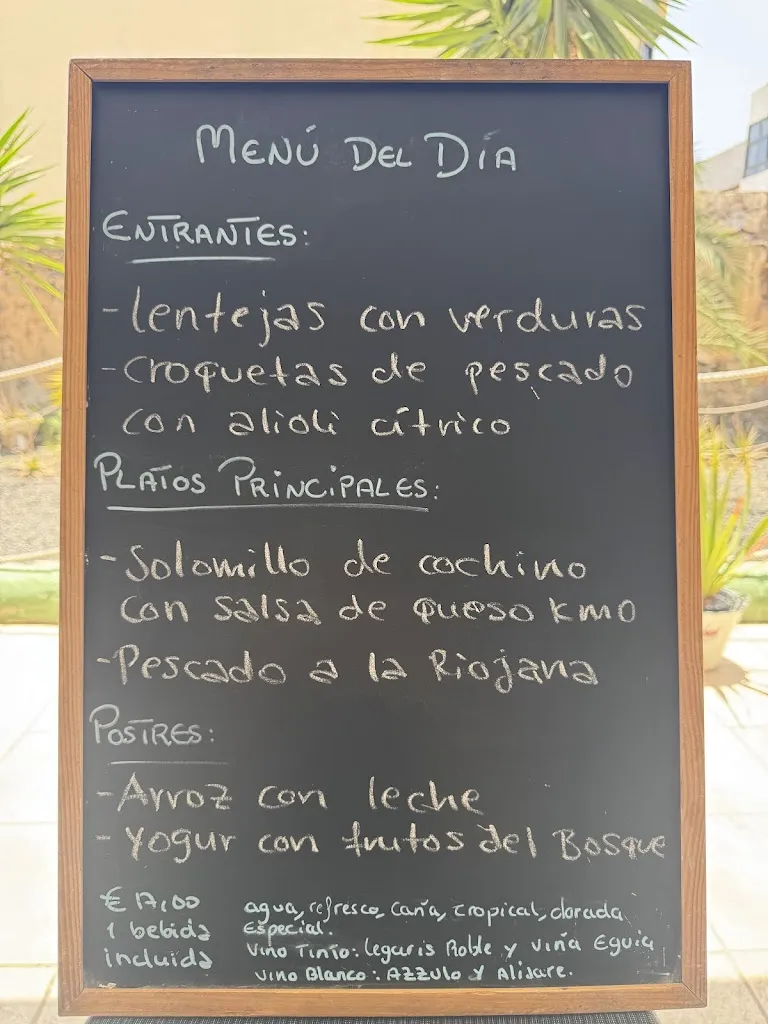 MENÚ DEL DÍA
ENTRANTES:
-lentejas con verduras
-croquetas de pescado
con alioli cítrico
PLATOS PRINCIPALES:
-Solomillo de cochino
con salsa de queso kmo
-Pescado a la Riojana
POSTRES:
-Arroz con leche
-Yogur con frutos del Bosque
€ 17,00
1 bebida
incluida
agua, refresco, caña, tropical, dorada
Especial.
Vino Tinto: legaris Roble y viña Eguia
Vino Blanco: AZZULO y Alisare.